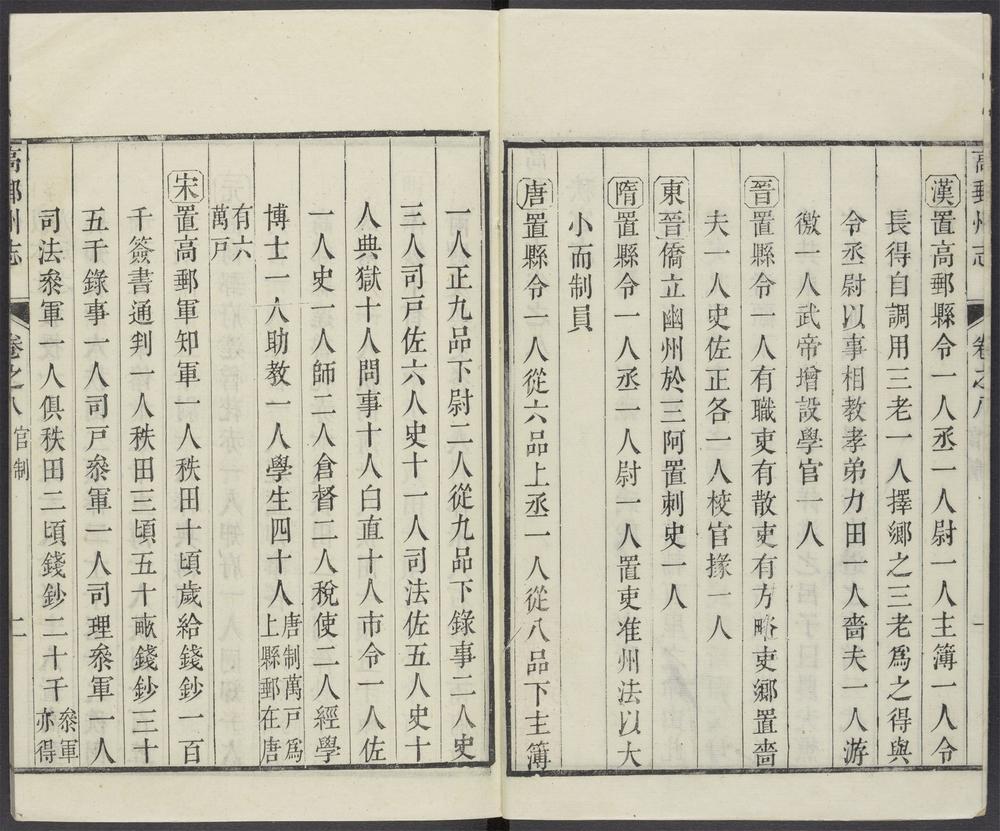 高郵州志 卷之八 一
漢置高郵縣令一人丞一人尉一人主簿一人令
長得自調用三老一人擇鄉之三老爲之得與
令丞尉以事相教孝弟力田一人嗇夫一人游
徼一人武帝增設學官一人
晉置縣令一人有職吏有散吏有方略吏鄉置嗇
夫一人史佐正各一人校官掾一人
東晉僑立幽州於三阿置刺史一人
隋置縣令一人丞一人尉一人置吏准州法以大
小而制員
唐置縣令一人從六品上丞一人從八品下主簿
一人正九品下尉二人從九品下錄事二人史
三人司戸佐六人史十一人司法佐五人史十
人典獄十人問事十人白直十人市令一人佐
一人史一人師二人倉督二人稅使二人經學
博士一人助教一人學生四十人唐制萬戸爲上縣郵在唐
有六萬戸
宋置高郵軍知軍一人秩田十頃歲給錢鈔一百
千簽書通判一人秩田三頃五十畞錢鈔三十
五千錄事一人司戸叅軍一人司理叅軍一人
司法叅軍一人俱秩田二頃錢鈔二十千叅軍亦得
高郵州志 卷之八 官制 二